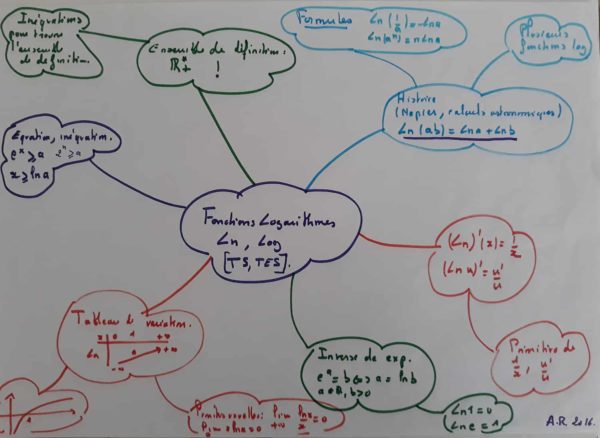 Inéquations
pour trouver
l'ensemble
de définition.
Ensemble de définition :
ℝ*₊ !
Formules
Ln(1/a) = -Lna
Ln(aⁿ) = nLna
Plusieurs
fonctions log
Histoire
(Napier, calculs astronomiques)
Ln(ab) = Lna + Lnb
Equation, inéquation.
eˣ ≥ a 2ⁿ ≥ a
x ≥ ln a
Fonctions Logarithmes
Ln, Log
[TS, TES].
(Ln)'(x) = 1/x
(Ln u)' = u'/u
Primitive de
1/x, u'/u
Tableau de variation.
x 0 1 +∞
Ln -∞ 0 +∞
Inverse de exp.
eᵃ = b <=> a = ln b
a ∈ ℝ, b > 0
Ln 1 = 0
Ln e = 1
lim lnx/x = 0
+∞
1
A.R. 2016.